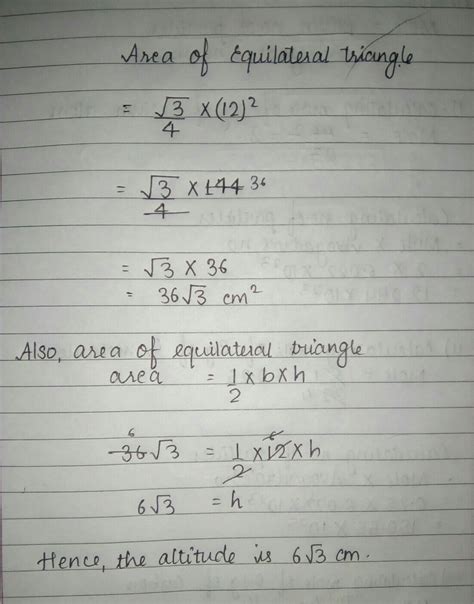 Area of Equilateral triangle
= √3/4 × (12)²
= √3/4 × 144 36
= √3 × 36
= 36√3 cm²
Also, area of equilateral triangle
area = 1/2 × b × h
6 6
36√3 = 1/2 × 12 × h
6√3 = h
Hence, the altitude is 6√3 cm.